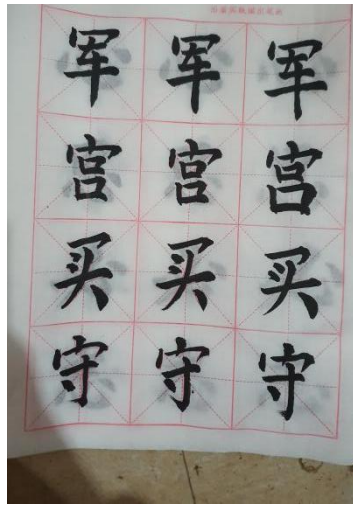 军军军
宫宫宫
买买买
守守守